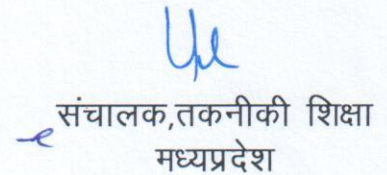 संचालक,तकनीकी शिक्षा
मध्यप्रदेश